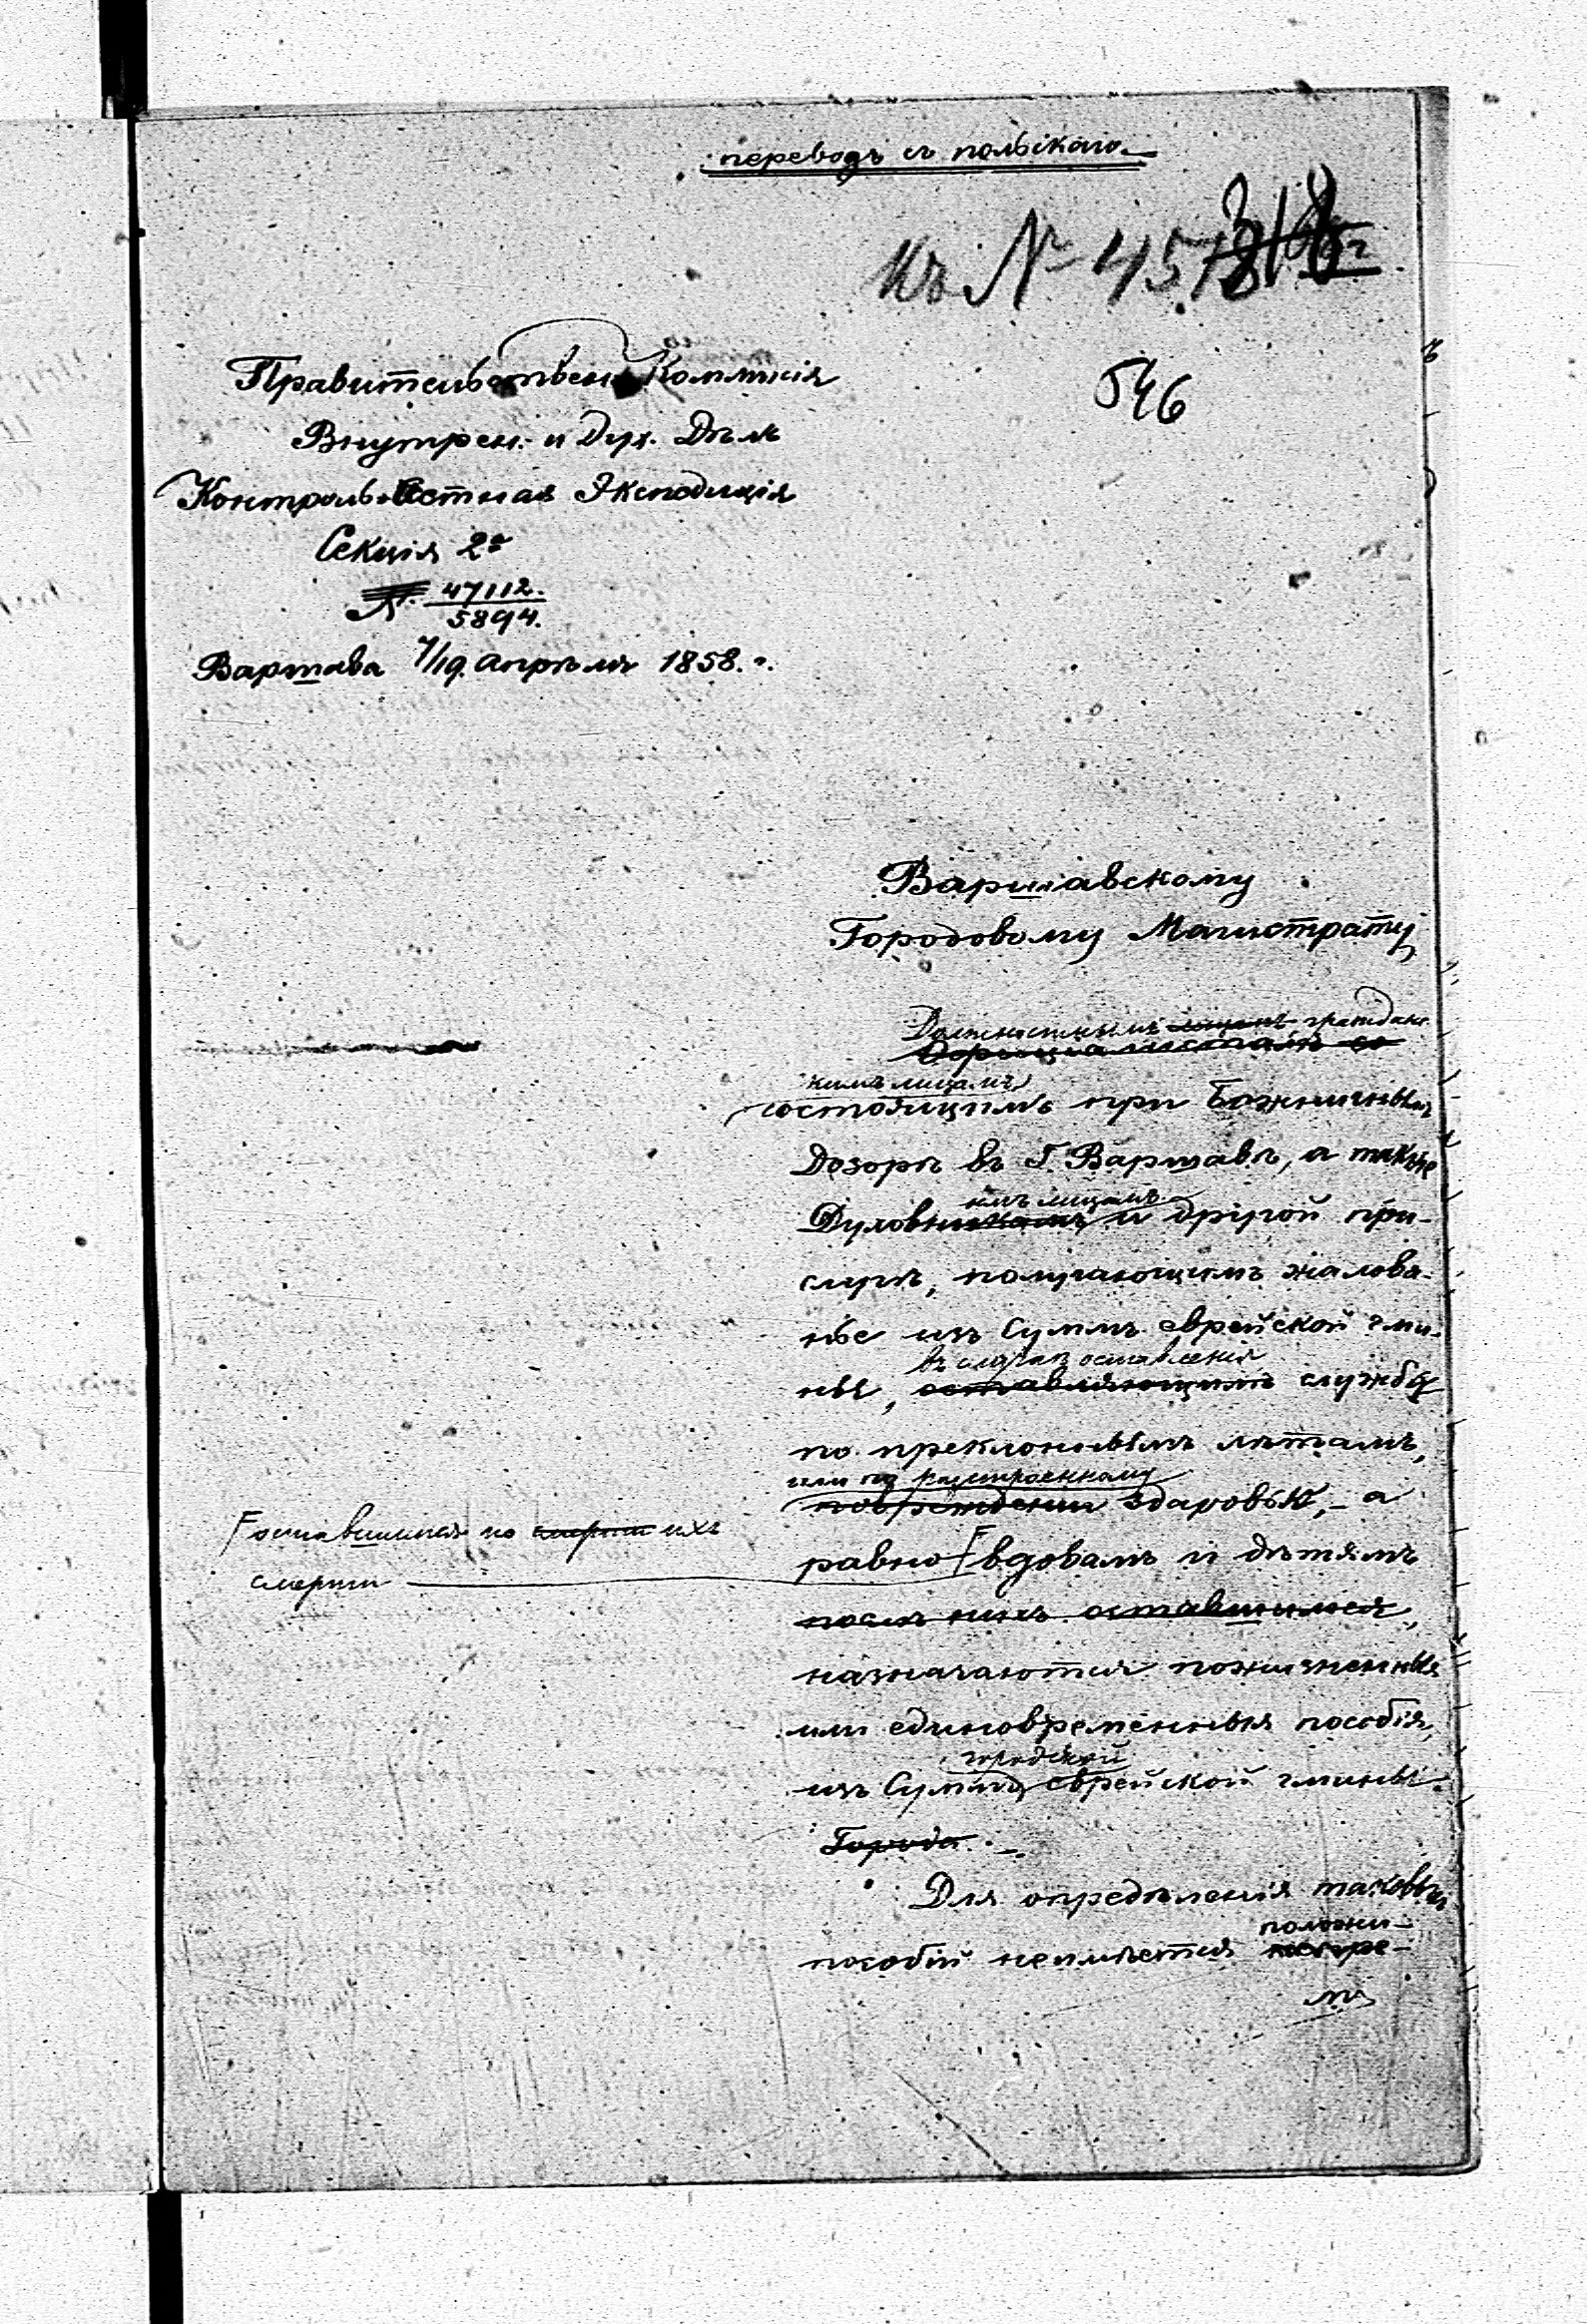 переводъ съ польскаго.
Къ № 4578
546
Правительствен. Коммисія
Внутрен. и Дух. Дѣлъ
Контрольно Счетная Экспедиція
Секція 2я
№ 47112.
5894.
Варшава 7/19 Апрѣля 1858 г.
Варшавскому
Городовому Магистрату
Должностнымъ лицамъ граждан
Оффиціалистамъ со
кимъ лицамъ
состоящимъ при Божничномъ
Дозорѣ въ Г. Варшавѣ, а также
имъ лицамъ
Духовникамъ и другой при-
слугѣ, получающимъ жалова-
нье изъ Суммъ еврейской гми-
въ случаѣ оставленія
ны, оставляющимъ службу
по преклоннымъ лѣтамъ,
или по разстроенному
поврежденiи здоровью, а
равно вдовамъ и дѣтямъ
оставшимся по смерти ихъ
смерти
послѣ нихъ оставшимся,
назначаются пожизненныя
или единовременныя пособія,
городской
изъ Суммъ еврейской гмины
Города.
Для опредѣленія таковыхъ
положи-
пособій неимѣется